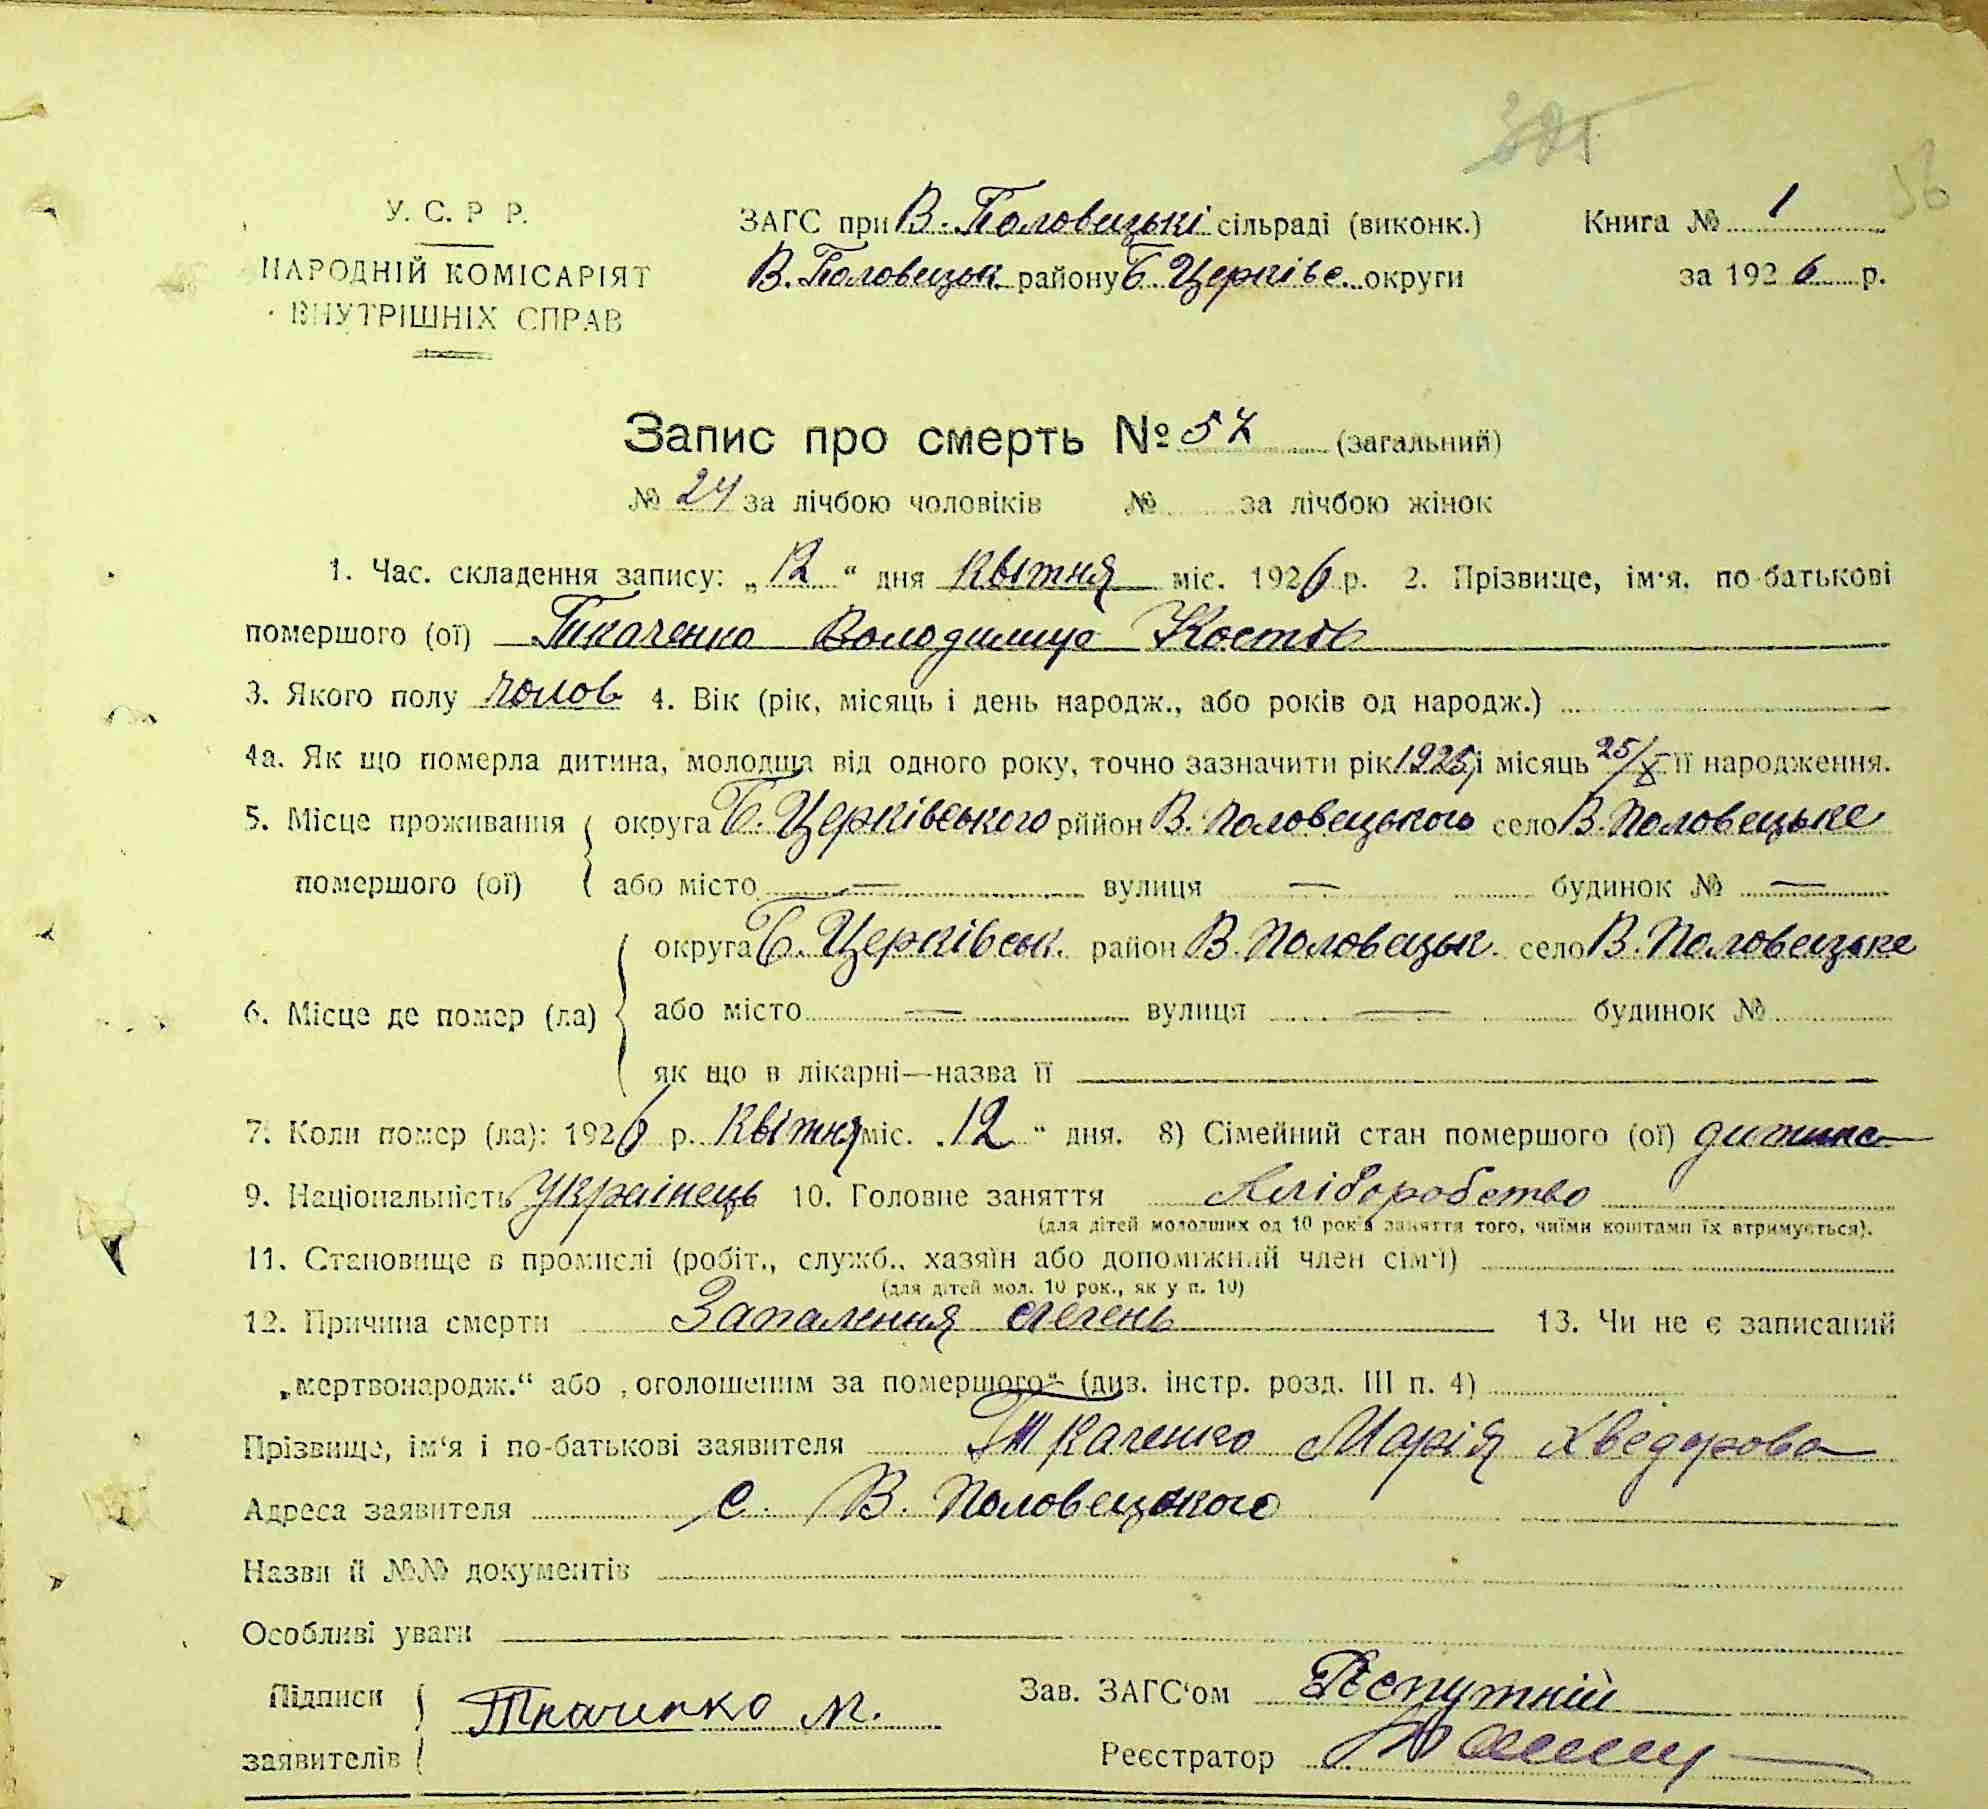 56
У. С. Р Р.
НАРОДНІЙ КОМІСАРІЯТ
ВНУТРІШНІХ СПРАВ
ЗАГС при В. Половецькі сільраді (виконк.) Книга № 1
В. Половецьк. району Б. Церківс. округи за 1926 р.
Запис про смерть № 57 (загальний)
№ 24 за лічбою чоловіків № за лічбою жінок
1. Час. складення запису: „12“ дня квітня міс. 1926 р. 2. Прізвище, ім'я, по-батькові
помершого (ої) Ткаченко Володимир Костів
3. Якого полу чолов 4. Вік (рік, місяць і день народж., або років од народж.)
4а. Як що померла дитина, молодша від одного року, точно зазначити рік 1925 і місяць 25/X її народження.
5. Місце проживання округа Б. Церківського рййон В. Половецького село В. Половецьке
помершого (ої) або місто — вулиця — будинок № —
округа Б. Церківськ. район В. Половецьк. село В. Половецьке
6. Місце де помер (ла) або місто — вулиця — будинок №
як що в лікарні—назва її
7. Коли помер (ла): 1926 р. квітня міс. 12 “ дня. 8) Сімейний стан помершого (ої) дитина
9. Національність українець 10. Головне заняття хліборобство
(для дітей молодших од 10 рок'в заняття того, чиїми коштами їх втримується).
11. Становище в промислі (робіт., служб., хазяїн або допоміжний член сім'ї)
(для дітей мол. 10 рок., як у п. 10)
12. Причина смерти Запалення легень 13. Чи не є записаний
„мертвонародж.“ або „оголошеним за помершого“ (див. інстр. розд. III п. 4)
Прізвище, ім'я і по-батькові заявителя Ткаченко Марія Хведорова
Адреса заявителя с. В. Половецького
Назви й №№ документів
Особливі уваги
Підписи Ткаченко М. Зав. ЗАГС'ом
заявителів Реєстратор